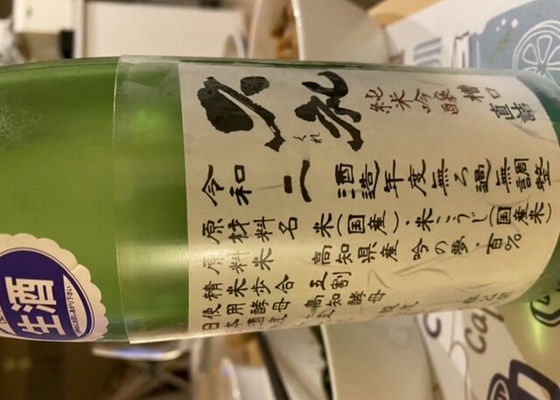 久礼
くれ
純米吟醸
槽口直詰
令和二酒造年度 無ろ過無調整
原材料名 米(国産)・米こうじ(国産米)
原料米 高知県産 吟の夢・百%
精米歩合 五割
使用酵母 高知酵母
日本酒度
生酒